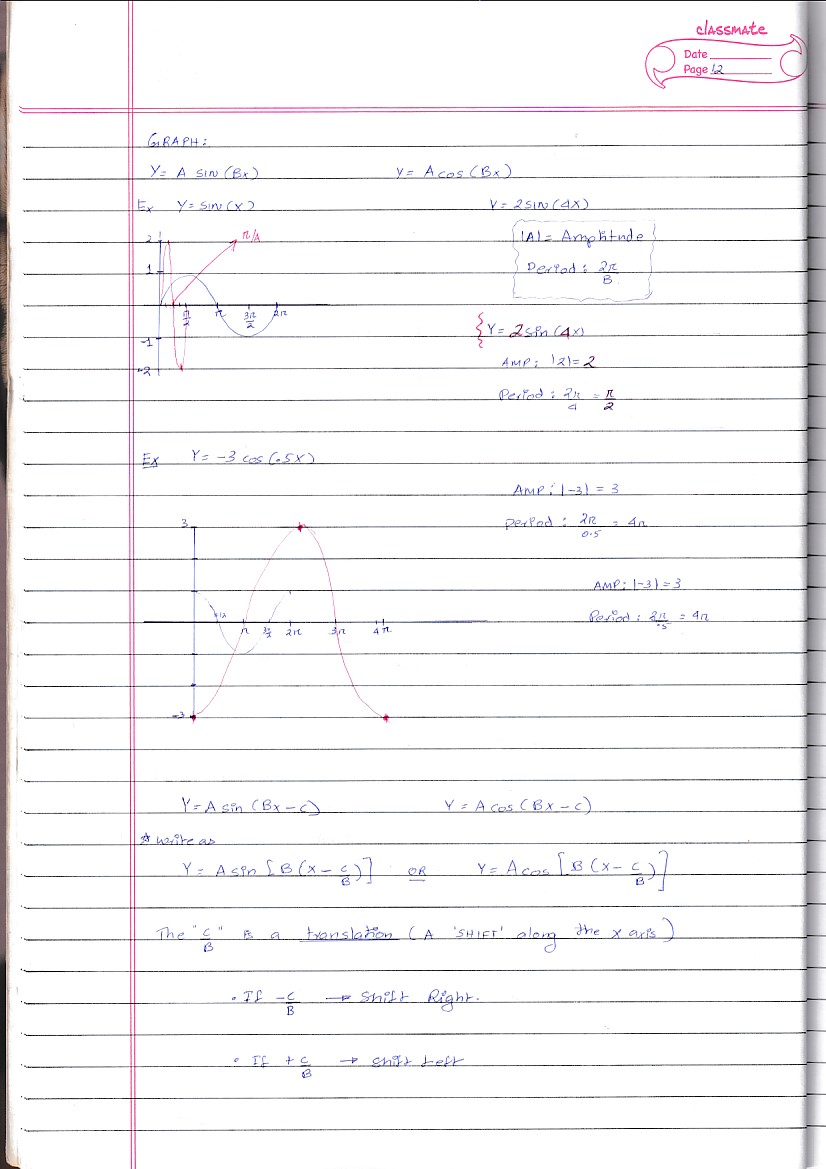 classmate
Date
Page 12
GRAPH:
Y= A SIN (Bx) Y= A cos (Bx)
Ex Y= SIN (x) Y= 2 SIN (4x)
2 π/4 |A|= Amplitude
1 Period: 2π/B
π/2 π 3π/2 2π
-1 Y= 2 sin (4x)
-2 AMP: |2|= 2
Period: 2π/4 = π/2
Ex Y= -3 cos (.5x)
AMP: |-3| = 3
3 Period: 2π/0.5 = 4π
AMP: |-3| = 3
π 2π 3π 4π Period: 2π/.5 = 4π
-3
Y= A sin (Bx - C) Y= A cos (Bx - C)
* write as
Y= A sin [B (x - C/B)] OR Y= A cos [B (x - C/B)]
The "C/B" is a translation (A 'SHIFT' along the x axis)
• If -C/B → Shift Right.
• If +C/B → Shift Left